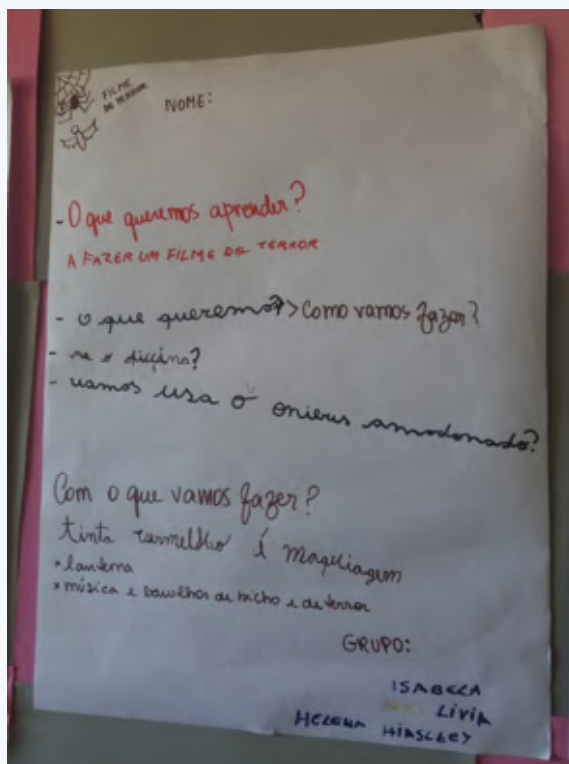 FILME
DE TERROR
NOME:
- O que queremos aprender?
A FAZER UM FILME DE TERROR
- o que queremos?> Como vamos fazer?
- na o
- vamos usa o onieus amodonado?
Com o que vamos fazer?
tinta vermelho é Maquiagem
* lanterna
* música e barulhos de bicho e de terror
GRUPO:
ISABELA
LIVIA
HELENA